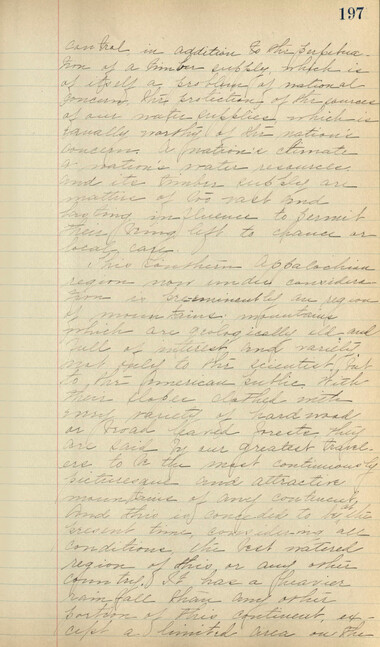 197
control in addition to the perpetua-
tion of a timber supply, which is
of itself a problem of national
concern, the protection of the sources
of our water supplies which is
equally worthy of the nation's
concern. A nation's climate
a nation's water resources
and its timber supply are
matters of too vast and
lasting influence to permit
their being left to chance or
local care.
This Southern Appalachian
region now under considera
tion is preeminently an region
of mountains, mountains
which are geologically old and
full of interest and variety
not only to the scientist, but
to the American public. With
their slopes clothed with
every variety of hardwood
or broad leaved forests they
are said by our greatest travel-
ers to be the most continuously
picturesque and attractive
mountains of any continent,
And this is conceded to be, the
present time, considering all
conditions, the best watered
region of this or any other
country. It has a heavier
rain fall than any other
portion of this continent, ex-
cept a limited area on the